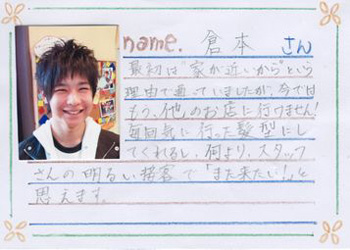 name. 倉本 さん
最初は"家が近いから"という
理由で通っていましたが、今では
もう、他のお店に行けません!
毎回気に行った髪型にし
てくれるし、何より、スタッフ
さんの明るい接客で「また来たい!」と
思えます。